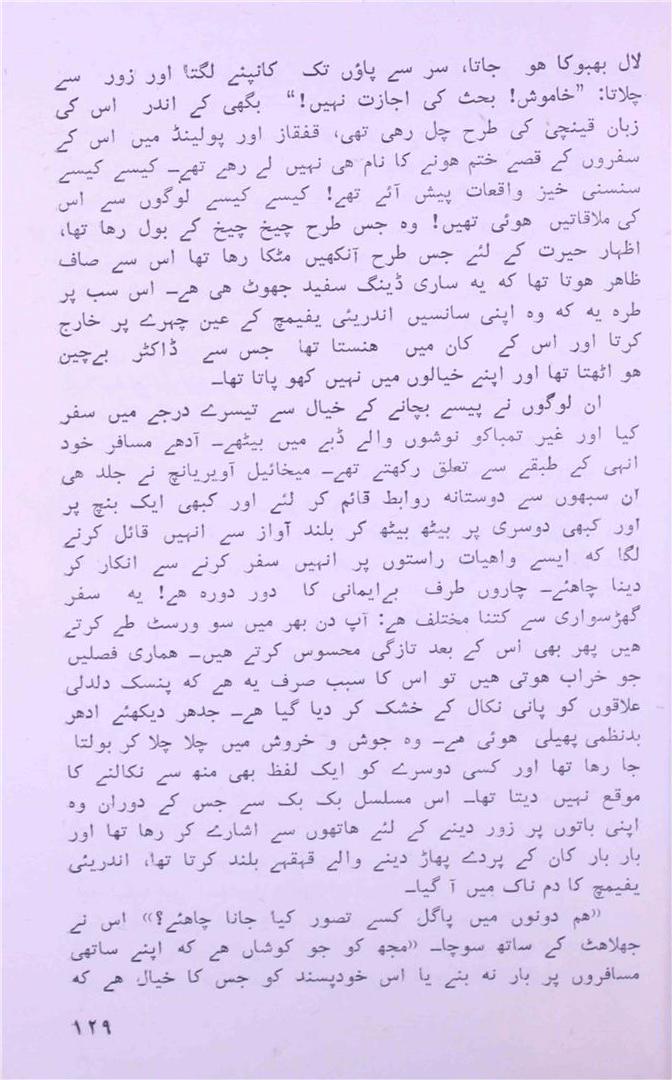 لال بھبوکا ھو جاتا، سر سے پاؤں تک کانپنے لگتا اور زور سے
چلاتا: ”خاموش! بحث کی اجازت نہیں!“ بگھی کے اندر اس کی
زبان قینچی کی طرح چل رھی تھی، قفقاز اور پولینڈ میں اس کے
سفروں کے قصے ختم ھونے کا نام ھی نہیں لے رھے تھے۔ کیسے کیسے
سنسنی خیز واقعات پیش آئے تھے! کیسے کیسے لوگوں سے اس
کی ملاقاتیں ھوئی تھیں! وہ جس طرح چیخ چیخ کے بول رھا تھا،
اظہار حیرت کے لئے جس طرح آنکھیں مٹکا رھا تھا اس سے صاف
ظاھر ھوتا تھا کہ یہ ساری ڈینگ سفید جھوٹ ھی ھے۔ اس سب پر
طرہ یہ کہ وہ اپنی سانسیں اندریئی یفیمچ کے عین چہرے پر خارج
کرتا اور اس کے کان میں ھنستا تھا جس سے ڈاکٹر بےچین
ھو اٹھتا تھا اور اپنے خیالوں میں نہیں کھو پاتا تھا۔
ان لوگوں نے پیسے بچانے کے خیال سے تیسرے درجے میں سفر
کیا اور غیر تمباکو نوشوں والے ڈبے میں بیٹھے۔ آدھے مسافر خود
انہی کے طبقے سے تعلق رکھتے تھے۔ میخائیل آویریانچ نے جلد ھی
ان سبھوں سے دوستانہ روابط قائم کر لئے اور کبھی ایک بنچ پر
اور کبھی دوسری پر بیٹھ بیٹھ کر بلند آواز سے انہیں قائل کرنے
لگا کہ ایسے واھیات راستوں پر انہیں سفر کرنے سے انکار کر
دینا چاھئے۔ چاروں طرف بےایمانی کا دور دورہ ھے! یہ سفر
گھڑسواری سے کتنا مختلف ھے: آپ دن بھر میں سو ورسٹ طے کرتے
ھیں پھر بھی اس کے بعد تازگی محسوس کرتے ھیں۔ ھماری فصلیں
جو خراب ھوتی ھیں تو اس کا سبب صرف یہ ھے کہ پنسک دلدلی
علاقوں کو پانی نکال کے خشک کر دیا گیا ھے۔ جدھر دیکھئے ادھر
بدنظمی پھیلی ھوئی ھے۔ وہ جوش و خروش میں چلا چلا کر بولتا
جا رھا تھا اور کسی دوسرے کو ایک لفظ بھی منھ سے نکالنے کا
موقع نہیں دیتا تھا۔ اس مسلسل بک بک سے جس کے دوران وہ
اپنی باتوں پر زور دینے کے لئے ھاتھوں سے اشارے کر رھا تھا اور
بار بار کان کے پردے پھاڑ دینے والے قہقہے بلند کرتا تھا، اندریئی
یفیمچ کا دم ناک میں آ گیا۔
«ھم دونوں میں پاگل کسے تصور کیا جانا چاھئے؟» اس نے
جھلاھٹ کے ساتھ سوچا۔ «مجھ کو جو کوشاں ھے کہ اپنے ساتھی
مسافروں پر بار نہ بنے یا اس خودپسند کو جس کا خیال ھے کہ
۱۲۹